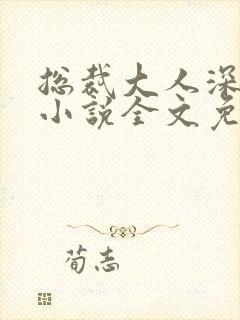 总裁大人深
小说全文免
荀志